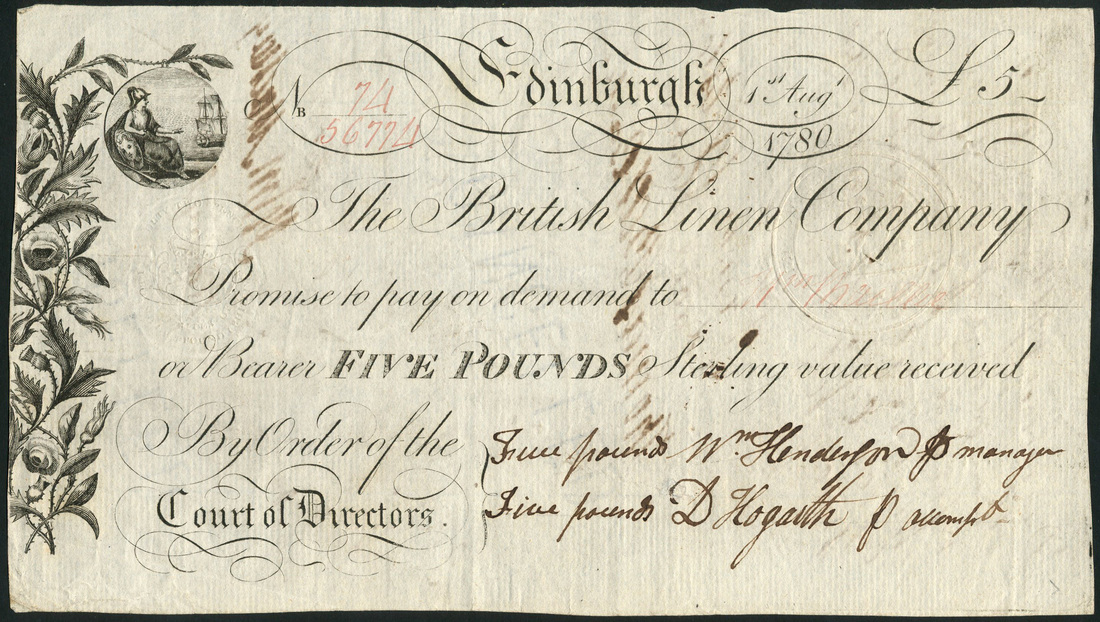 No 74
B 56774
Edinburgh
1st Augt
1780
£ 5
The British Linen Company
Promise to pay on demand to
or Bearer FIVE POUNDS Sterling value received
By Order of the
Court of Directors.
Five pounds Wm Henderson p manager
Five pounds D Hogarth p accompt